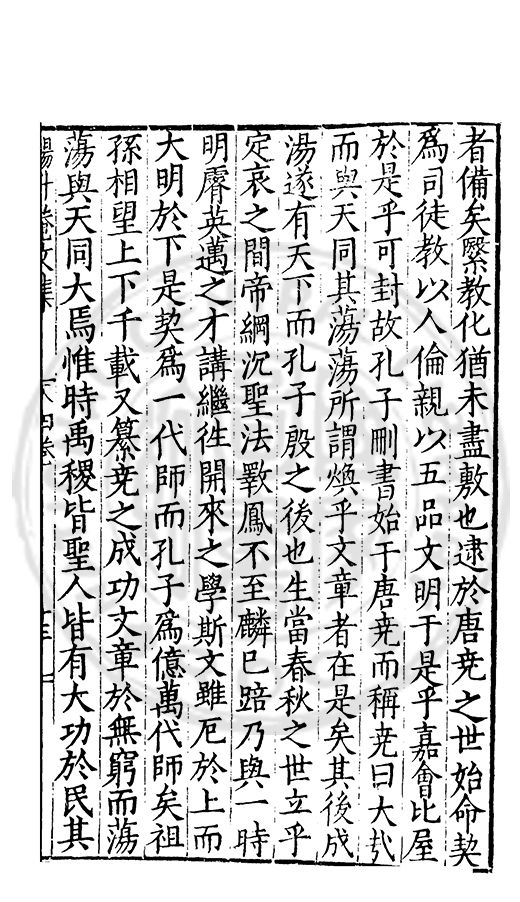 者備矣繄教化猶未盡敷也逮於唐堯之世始命契
爲司徒教以人倫親以五品文明于是乎嘉會比屋
於是乎可封故孔子刪書始于唐堯而稱堯曰大哉
而與天同其蕩蕩所謂煥乎文章者在是矣其後成
湯遂有天下而孔子殷之後也生當春秋之世立乎
定哀之間帝綱沉聖法斁鳳不至麟已踣乃與一時
明膺英邁之才講繼徃開來之學斯文雖厄於上而
大明於下是契爲一代師而孔子爲億萬代師矣祖
孫相望上下千載又纂堯之成功文章於無窮而蕩
蕩與天同大焉惟時禹稷皆聖人皆有大功於民其